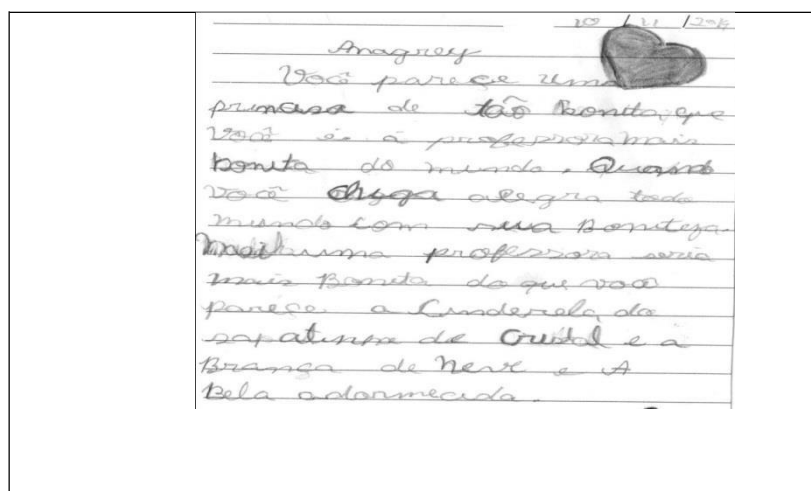 20 / 11 / 2014
Anagrey
Você pareçe uma
primsasa de tão Bonita, que
você é a professora mais
Bonita do mundo. Quando
você chega alegra todo
mundo com sua Boniteza.
professora seria
mais Bonita do que você
pareçe a Cinderela, do
sapatinho de Cristal e a
Brança de Neve e A
Bela adormecida.